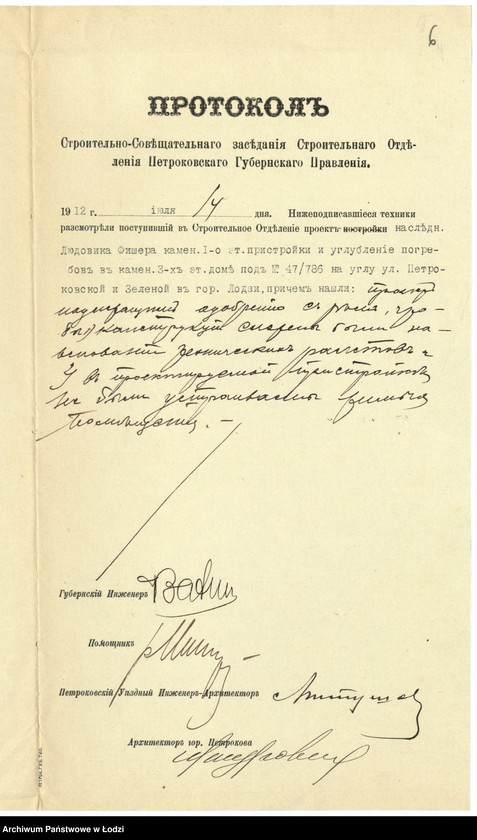 6
ПРОТОКОЛЪ
Строительно-Совѣщательнаго засѣданія Строительнаго Отдѣ-
ленія Петроковскаго Губернскаго Правленія.
1912 г. іюля 14 дня. Нижеподписавшіеся техники
разсмотрѣли поступившій въ Строительное Отдѣленіе проектъ постройки наслѣдн.
Людовика Фишера камен. I-о эт. пристройки и углубленіе погре-
бовъ въ камен. 3-хъ эт. домѣ подъ № 47/786 на углу ул. Петро-
ковской и Зеленой въ гор. Лодзи, причемъ нашли: проектъ
подлежащимъ одобренію съ тѣмъ, что-
бы конструкціи были на
основаніи техническихъ расчетовъ и
въ проектируемой пристройкѣ
не были устраиваемы жилыя
помѣщенія. —
Губернскій Инженеръ
Помощникъ
Петроковскій Уѣздный Инженеръ-Архитекторъ
Архитекторъ гор. Петрокова
Archiwum Państwowe w Łodzi